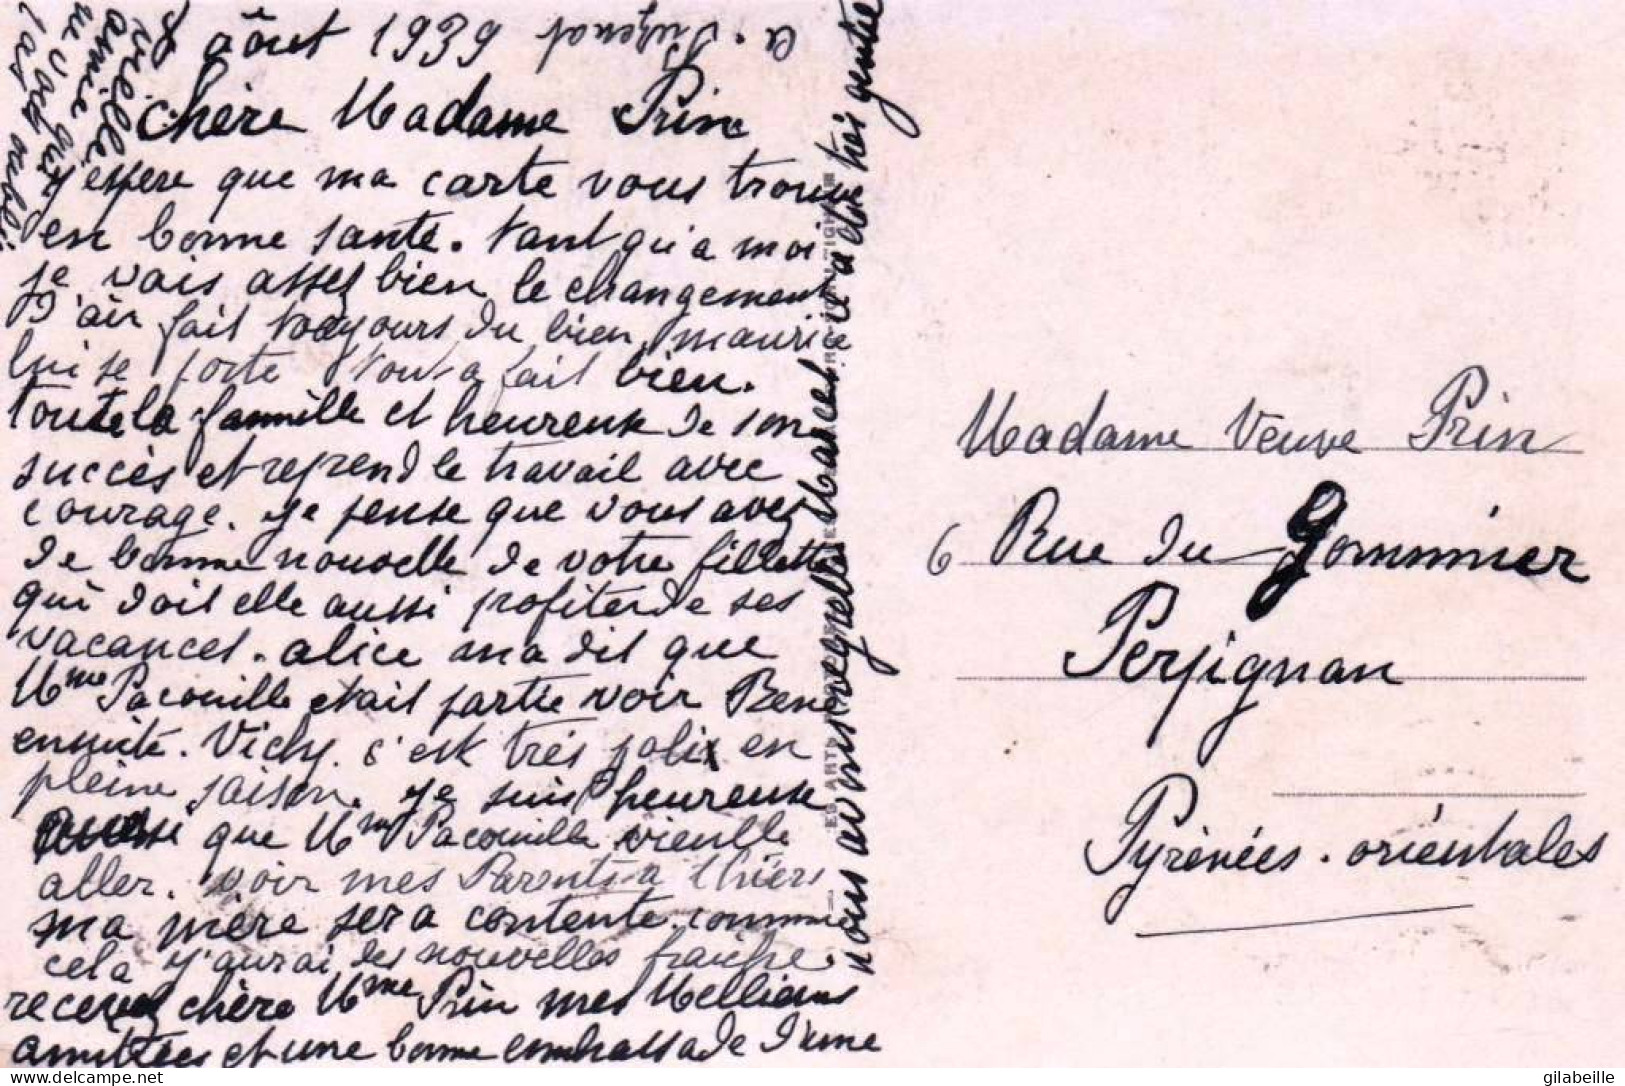 8 août 1939
Chère Madame Prin
J'espere que ma carte vous trouve
en bonne santé. tant qu'a moi
je vais assez bien le changement
d'air fait toujours du bien maurice
lui se porte tout a fait bien.
toute la famille et heureuse de son
succès et reprend le travail avec
courage. je pense que vous avez
de bonne nouvelle de votre fillette
qui doit elle aussi profiter de ses
vacances. alice ma dit que
Mme Pacouille etait partie voir René
ensuite. Vichy. c'est très joli en
pleine saison. je suis heureuse
que Mme Pacouille vienlle
aller. voir mes Parents a thiers
ma mère sera contente. comme
cela j'aurai des nouvelles fraiche.
recevez chère Mme Prin mes Mellieurs
amitiées et une bonne embrassade d'une
vieille
amie qui
ne vous
pas oublié
nous avons vue Marcel il a été très gentil
a. Juzenat
Madame Veuve Prin
6 Rue du Gommier
Perpignan
Pyrénées. orientales
gilabeille
www.delcampe.net